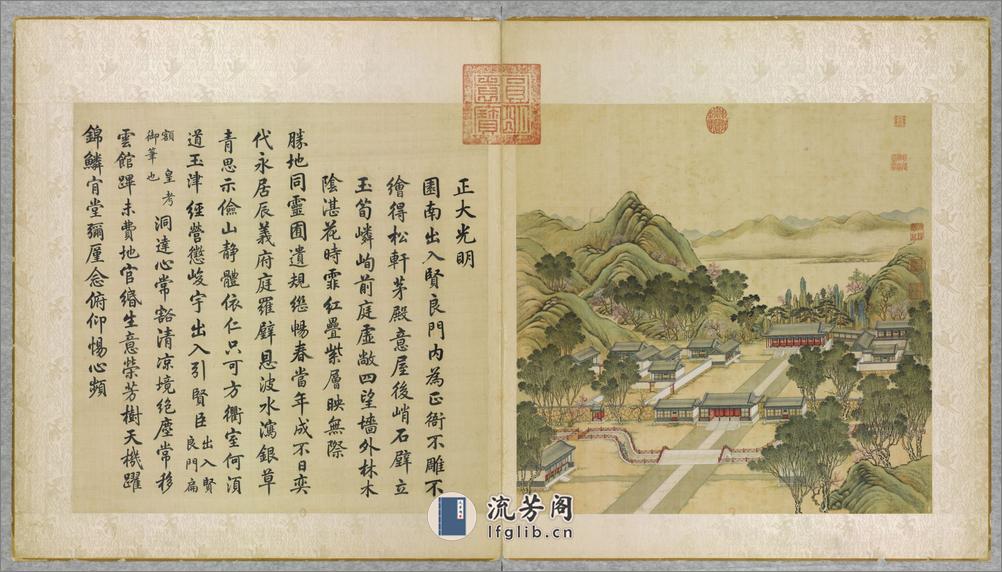 正大光明
園南出入賢良門内為正衙不雕不
繪得松軒茅殿意屋後峭石壁立
玉筍嶙峋前庭虛敞四望墻外林木
陰湛花時霏紅疊紫層映無際
勝地同靈囿遺規継暢春當年成不日奕
代永居辰義府庭羅壁恩波水瀉銀草
青思示儉山静體依仁只可方衢室何須
道玉津經營懲峻宇出入引賢臣出入賢良門扁
額皇考御筆也洞達心常豁清凉境絶塵常移
雲館蹕未費地官緡生意榮芳樹天機躍
錦鱗肯堂彌厪念俯仰惕心頻
流芳阁
lfglib.cn